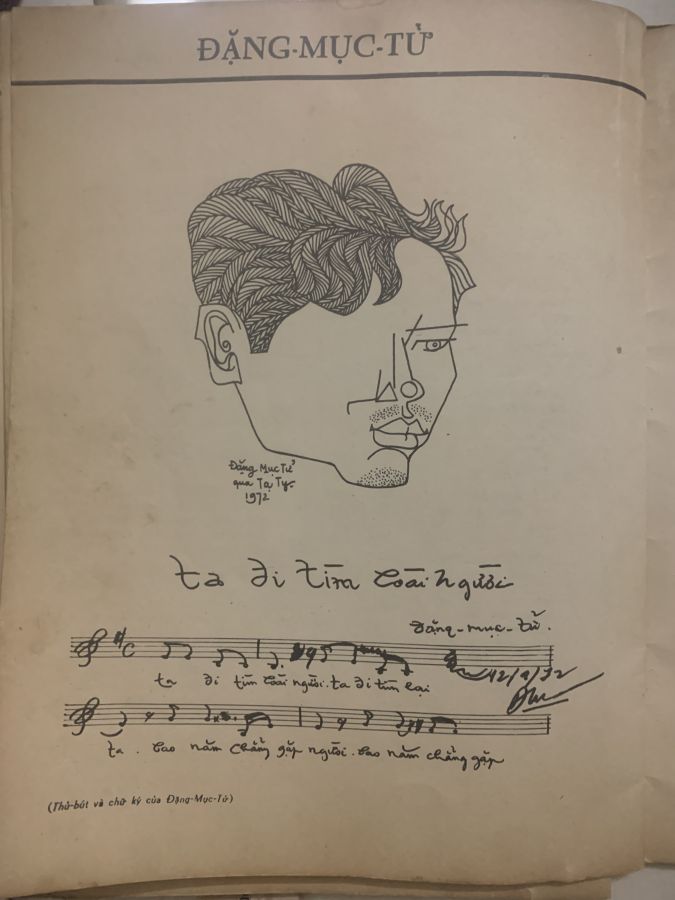 ĐẶNG-MỤC-TỬ
Đặng Mục Tử
qua Tạ Tỵ-
1972
ta đi tìm loài người
Đặng-mục-tử.
ta đi tìm loài người. ta đi tìm lại
ta. bao năm chẳng gặp người. bao năm chẳng gặp
(Thủ-bút và chữ ký của Đặng-Mục-Tử)